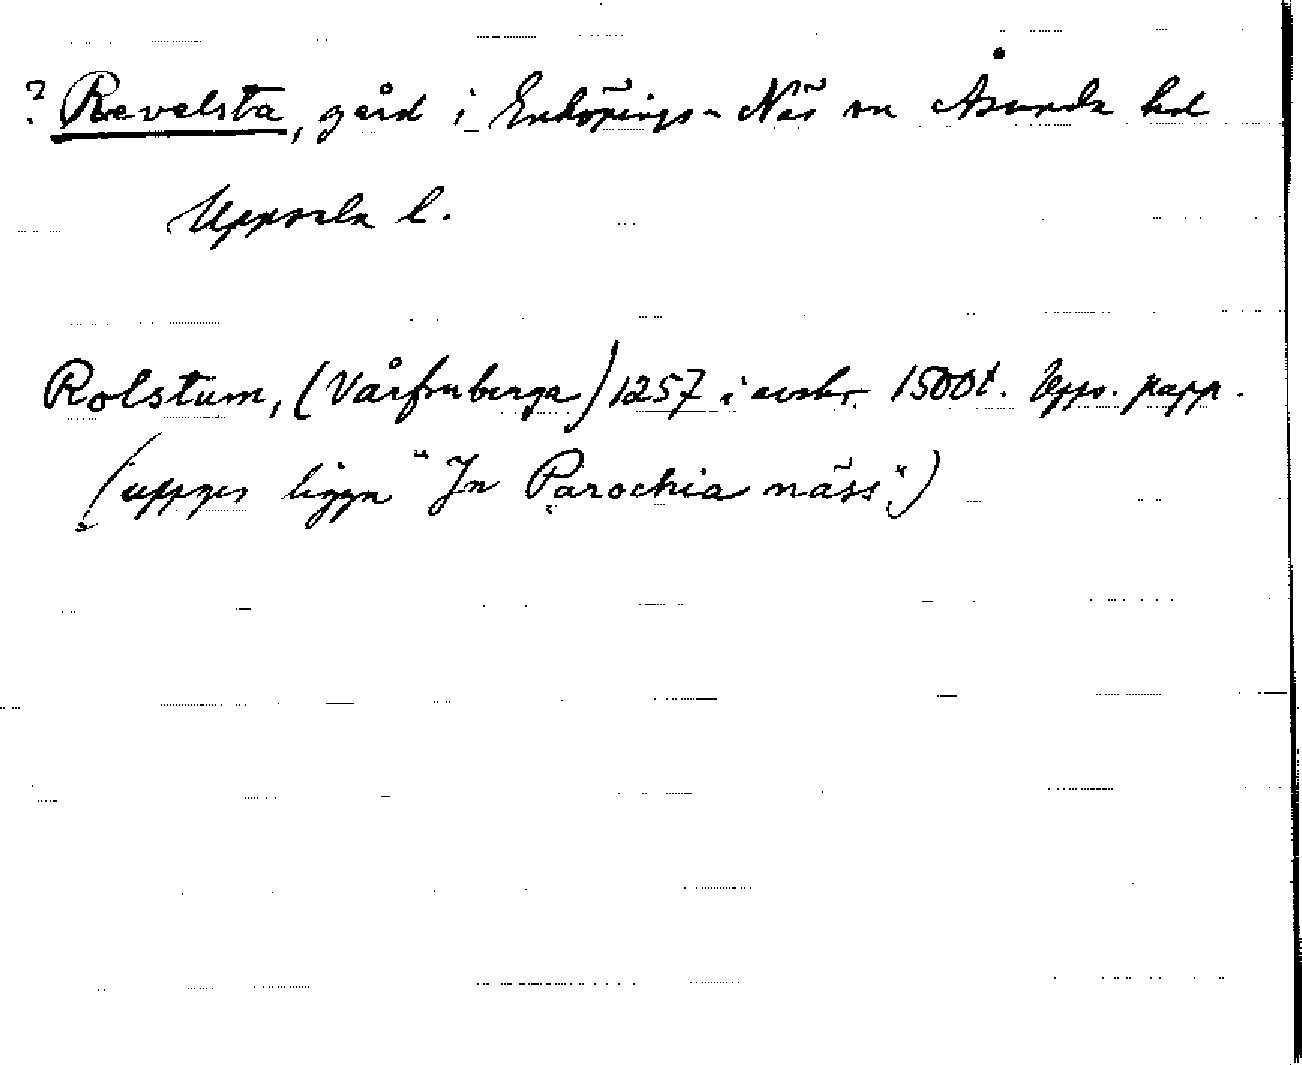 ? Revelsta, gård i Enköpings-Näs sn Åsunda hd
Uppsala l.
Rolstum, (Vårfruberga) 1257 i avskr. 1500t. Upps. papp.
(uppges ligga "In Parochia näss")